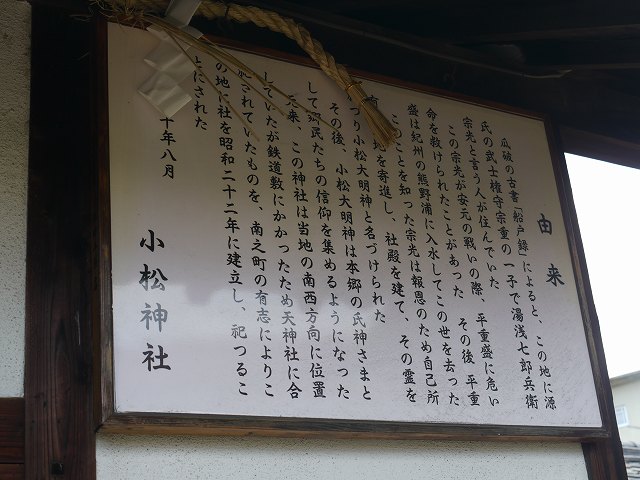 由来
瓜破の古書「船戸録」によると、この地に源
氏の武士権守宗重の一子で湯浅七郎兵衛
宗光と言う人が住んでいた。
この宗光が安元の戦いの際、平重盛に危い
命を救けられたことがあった その後 平重
盛は紀州の熊野浦に入水してこの世を去った
ことを知った宗光は報恩のため自己所
有 地を寄進し、社殿を建て、その霊を
つり小松大明神と名づけられた
その後、小松大明神は本郷の氏神さまと
して郷民たちの信仰を集めるようになった
元来、この神社は当地の南西方向に位置
していたが鉄道敷にかかったため天神社に合
祀されていたものを、南之町の有志によりこ
の地に社を昭和二十二年に建立し、祀つるこ
とにされた
十年八月
小松神社